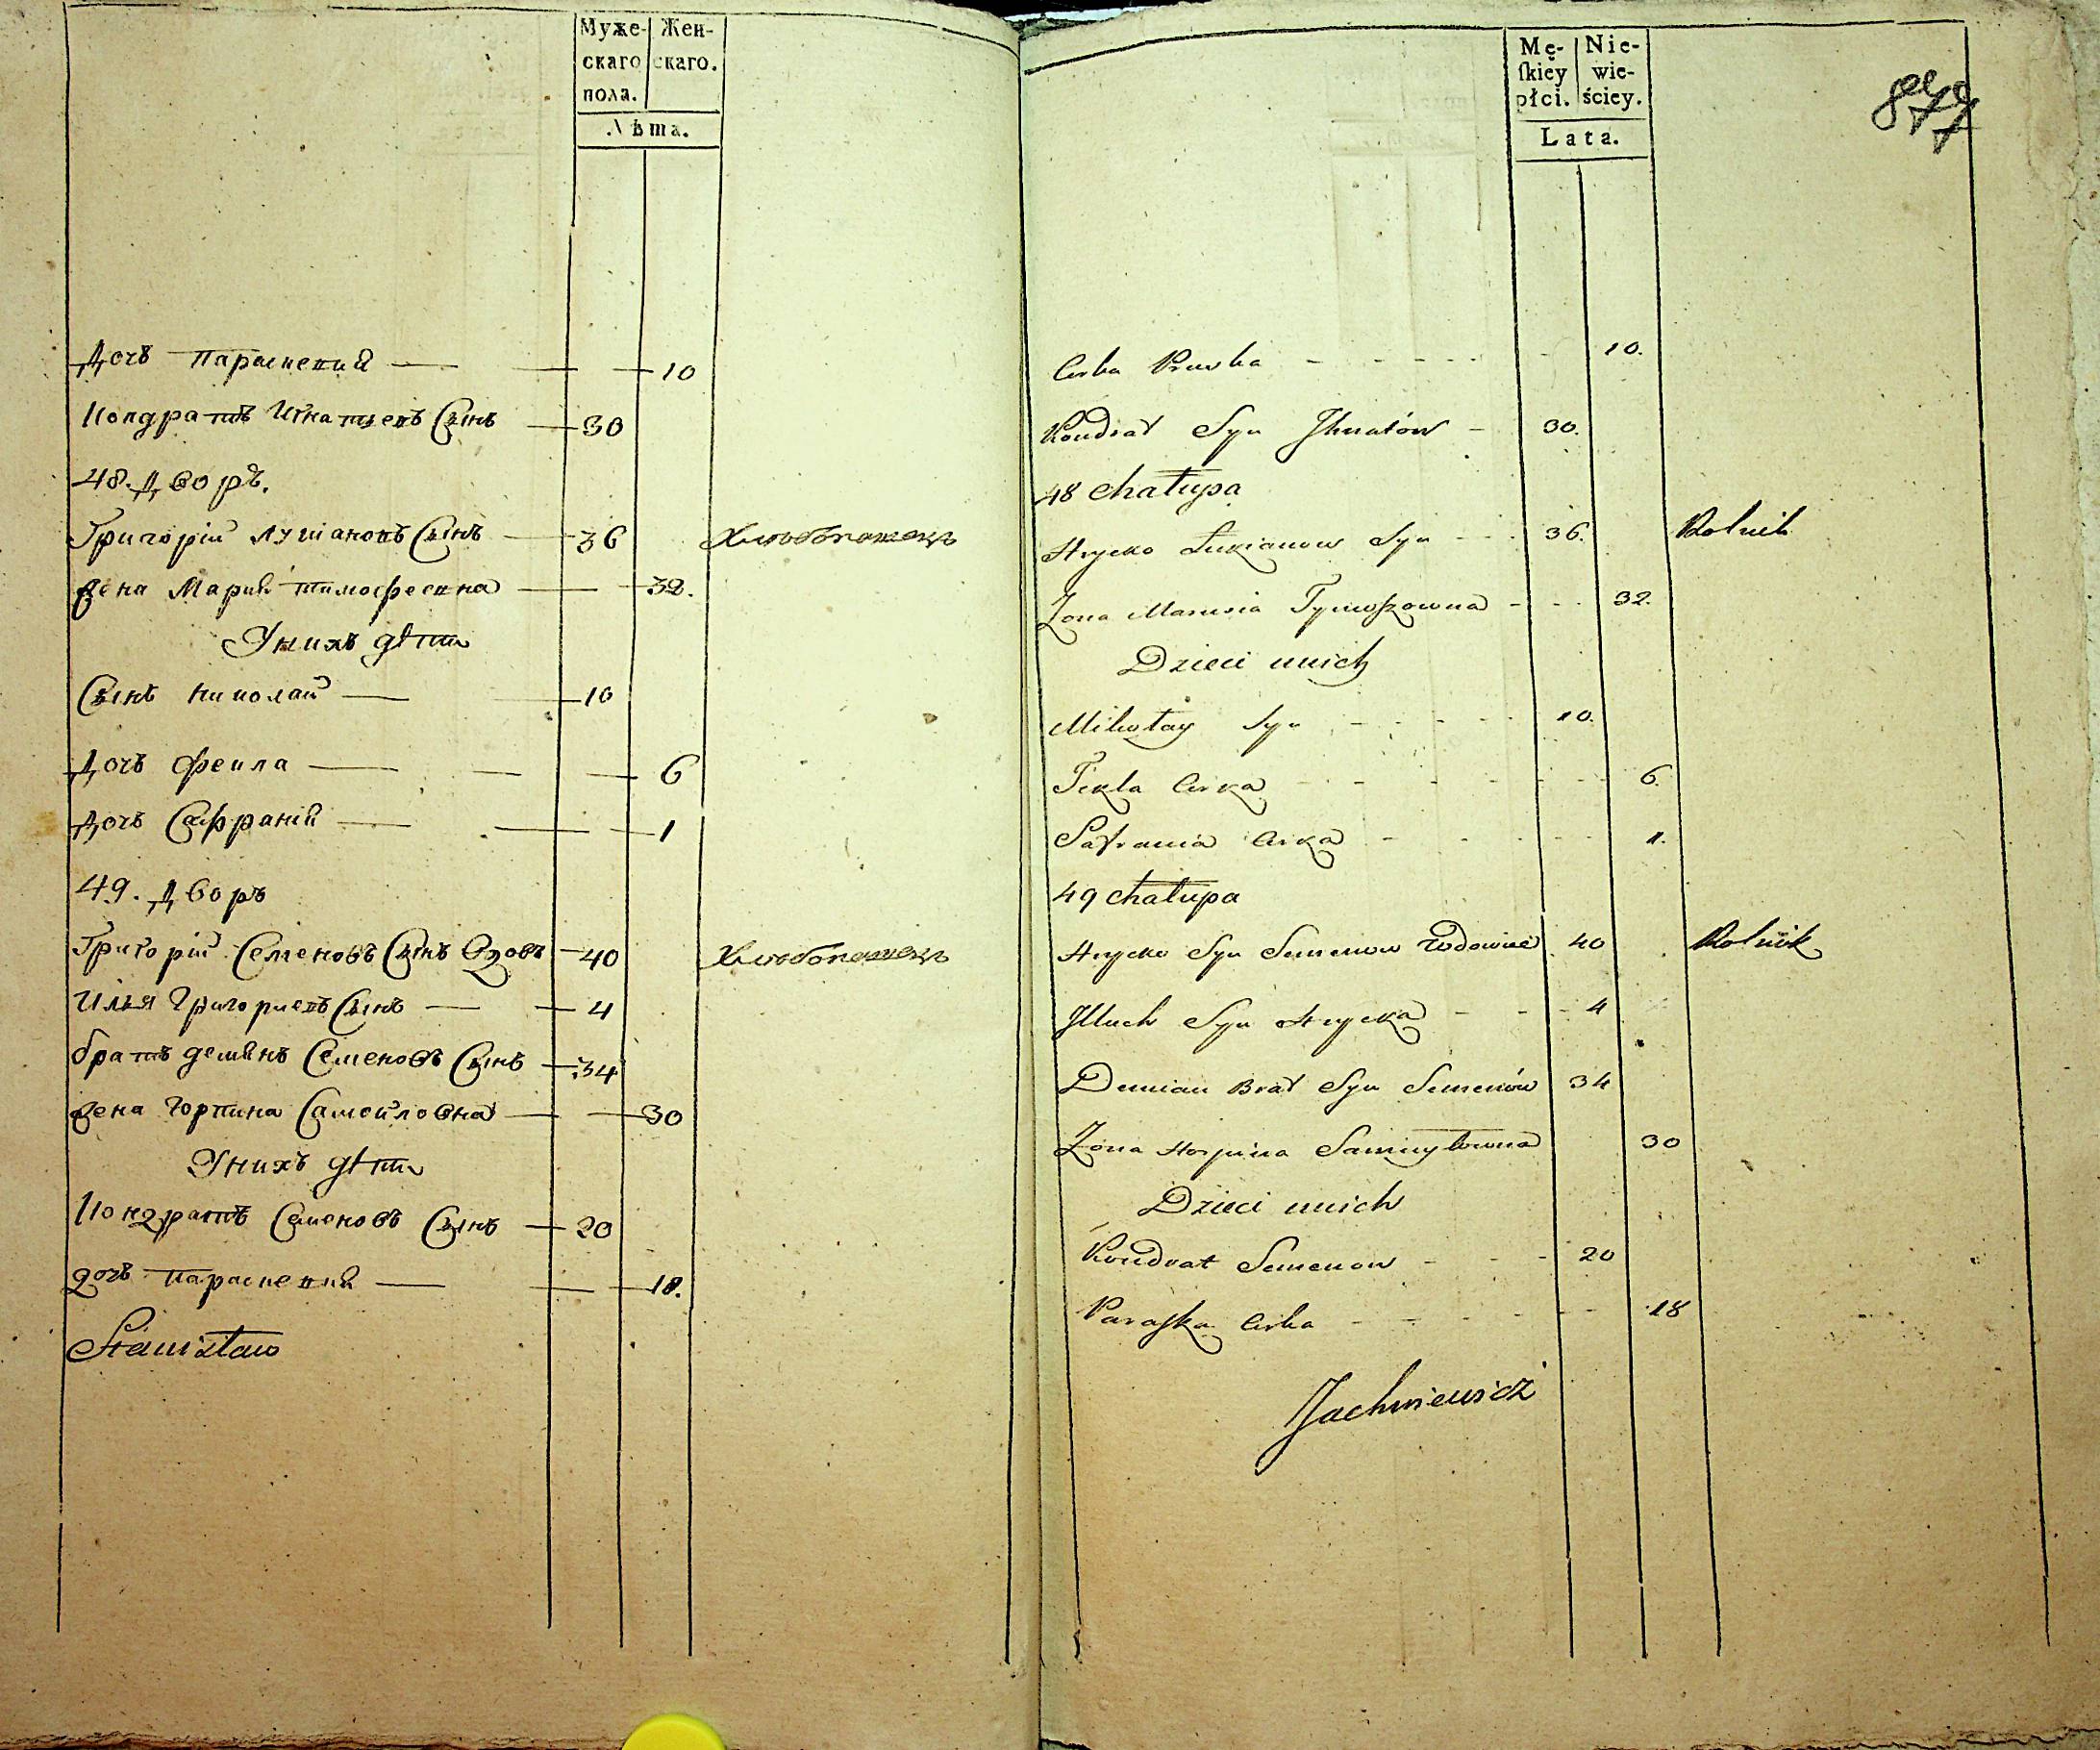 Муже- Жен-
скаго скаго.
пола.
Лѣта.
Дочь Параскевия 10
Кондратъ Игнатьевъ Сынъ 30
48. Дворъ.
Григорій Лукіановъ Сынъ 36 Хлѣбопашецъ
Жена Мария Тимофеевна 32.
У нихъ дѣти
Сынъ Николай 10
Дочь Фекла 6
Дочь Сафрания 1
49. Дворъ
Григорій Семеновъ Сынъ 40 Хлѣбопашецъ
Илья Григориевъ Сынъ 4
братъ демянъ Семеновъ Сынъ 34
Жена Горпина Самойловна 30
У нихъ дѣти
Кондратъ Семеновъ Сынъ 20
дочь Параскевия 18.
Stanisław
Mę- Nie-
ſkiey wie-
płci. ściey.
Lata.
877
Corka 10.
Kondrat Syn Ihnatów 30.
48 chałupa
Hrycko Łukianow Syn 36. Rolnik
Zona Marusia Tymoszowna 32.
Dzieci unich
Mikołay Syn 10.
Tekla Corka 6.
Safrania Corka 1.
49 chałupa
Hrycko Syn Semenow 40 Rolnik
Illuch Syn Hrycka 4
Demian Brat Syn Semenów 34
Zona Horpina Samuyłowna 30
Dzieci unich
Kondrat Semenow 20
Paraſka Corka 18
Jachniewicz